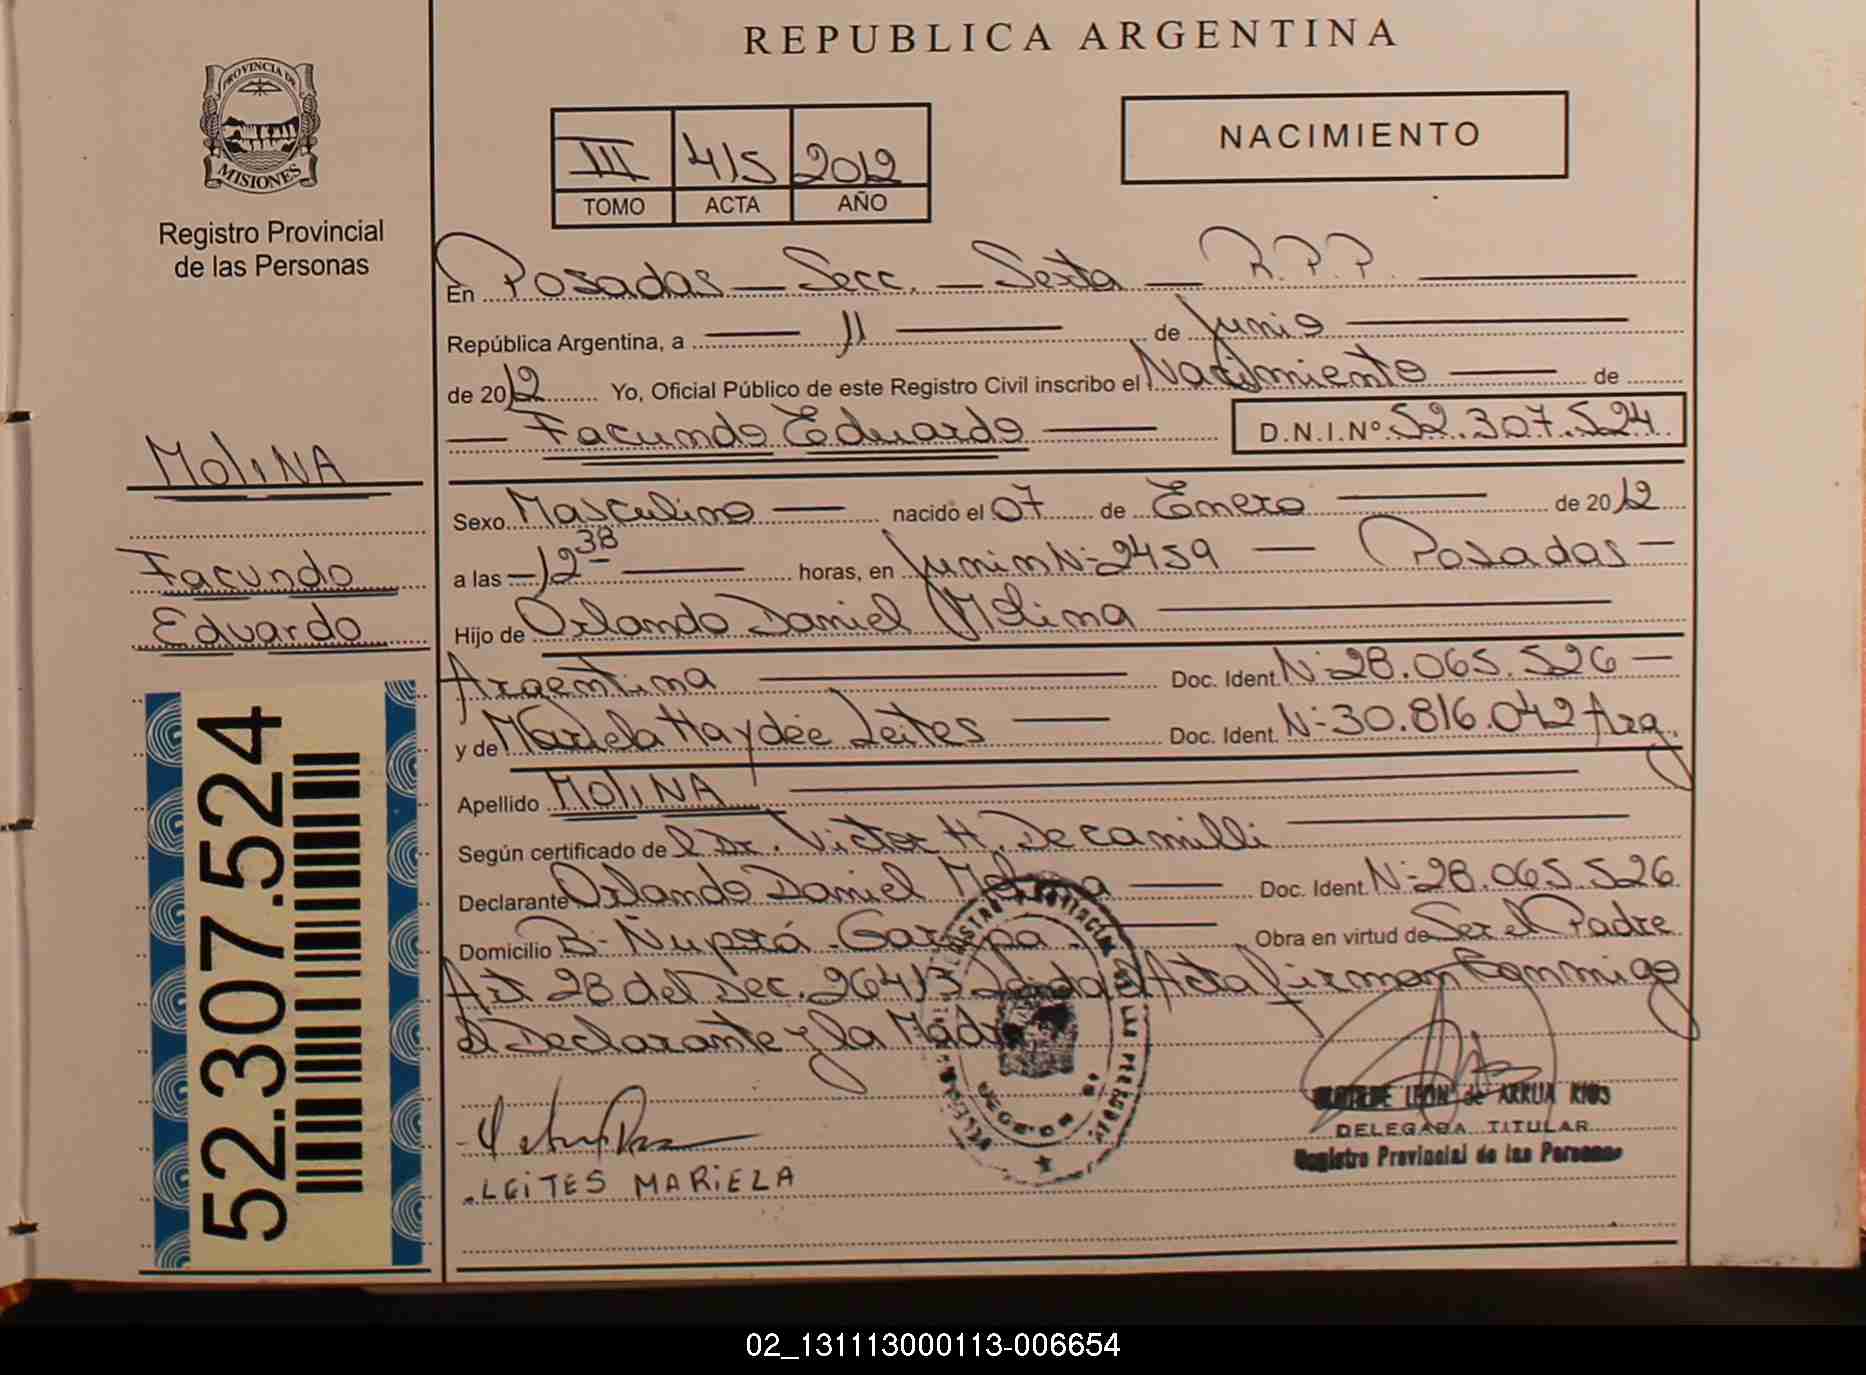 REPUBLICA ARGENTINA
PROVINCIA DE
MISIONES
Registro Provincial
de las Personas
NACIMIENTO
III 415 2012
TOMO ACTA AÑO
En Posadas — Secc. — Sexta — R.P.P.
República Argentina, a — 11 — de Junio
de 2012 Yo, Oficial Público de este Registro Civil inscribo el Nacimiento — de
— Facundo Eduardo — D.N.I.Nº 52.307.524
MOLINA
Facundo
Eduardo
Sexo Masculino — nacido el 07 de Enero — de 2012
a las — 12 38 — horas, en Junin Nº 2459 — Posadas —
Hijo de Orlando Daniel Molina
Argentina — Doc. Ident. Nº 28.065.526 —
y de Mariela Haydée Leites — Doc. Ident. Nº 30.816.042 Arg.
Apellido MOLINA
Según certificado de l Dr. Victor H. Decamilli
Declarante Orlando Daniel Molina — Doc. Ident. Nº 28.065.526
Domicilio Bº Ñu porá - Garupá - Obra en virtud de Ser el Padre
Art 28 del Dec. 26413 Leida el Acta firman Conmigo
el Declarante y la Madre
LEITES MARIELA
LEON de ARRUA RIOS
DELEGADA TITULAR
Registro Provincial de las Personas
52.307.524
02_131113000113-006654